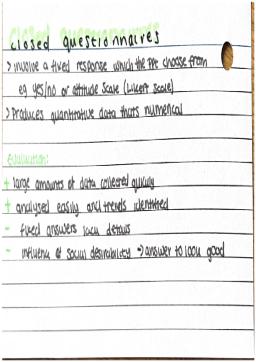 closed questionnaires
> involve a fixed response which the ppt choose from
eg yes/no or attitude scale (Likert scale)
> Produces quantitative data thats numerical
Evaluation:
+ large amounts of data collected quickly
+ analysed easily and trends identified
- fixed answers lack details
- influence of social desirability → answer to look good